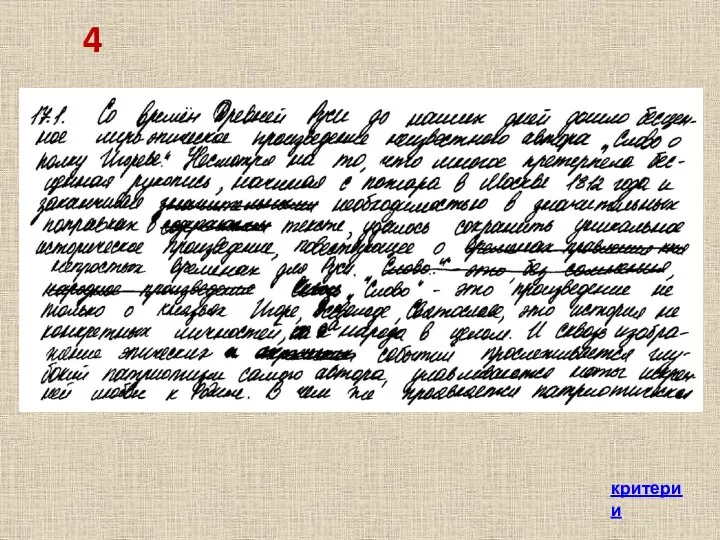 4
17.1. Со времён Древней Руси до наших дней дошло бесцен-
ное лиро-эпическое произведение неизвестного автора „Слово о
полку Игореве“. Несмотря на то, что многое претерпела бес-
ценная рукопись, начиная с пожара в Москве 1812 года и
заканчивая необходимостью в значительных
поправках в тексте, удалось сохранить уникальное
историческое произведение, повествующее о
непростых временах для Руси. „Слово...“ - это, без сомнения,
народное произведение „Слово“ - это произведение не
только о князьях Игоре, Всеволоде, Святославе, это история не
конкретных личностей, а народа в целом. И сквозь изобра-
жение эпических событий прослеживается глу-
бокий патриотизм самого автора, улавливаются ноты искрен-
ней любви к Родине. В чём же проявляется патриотическая
критери
и